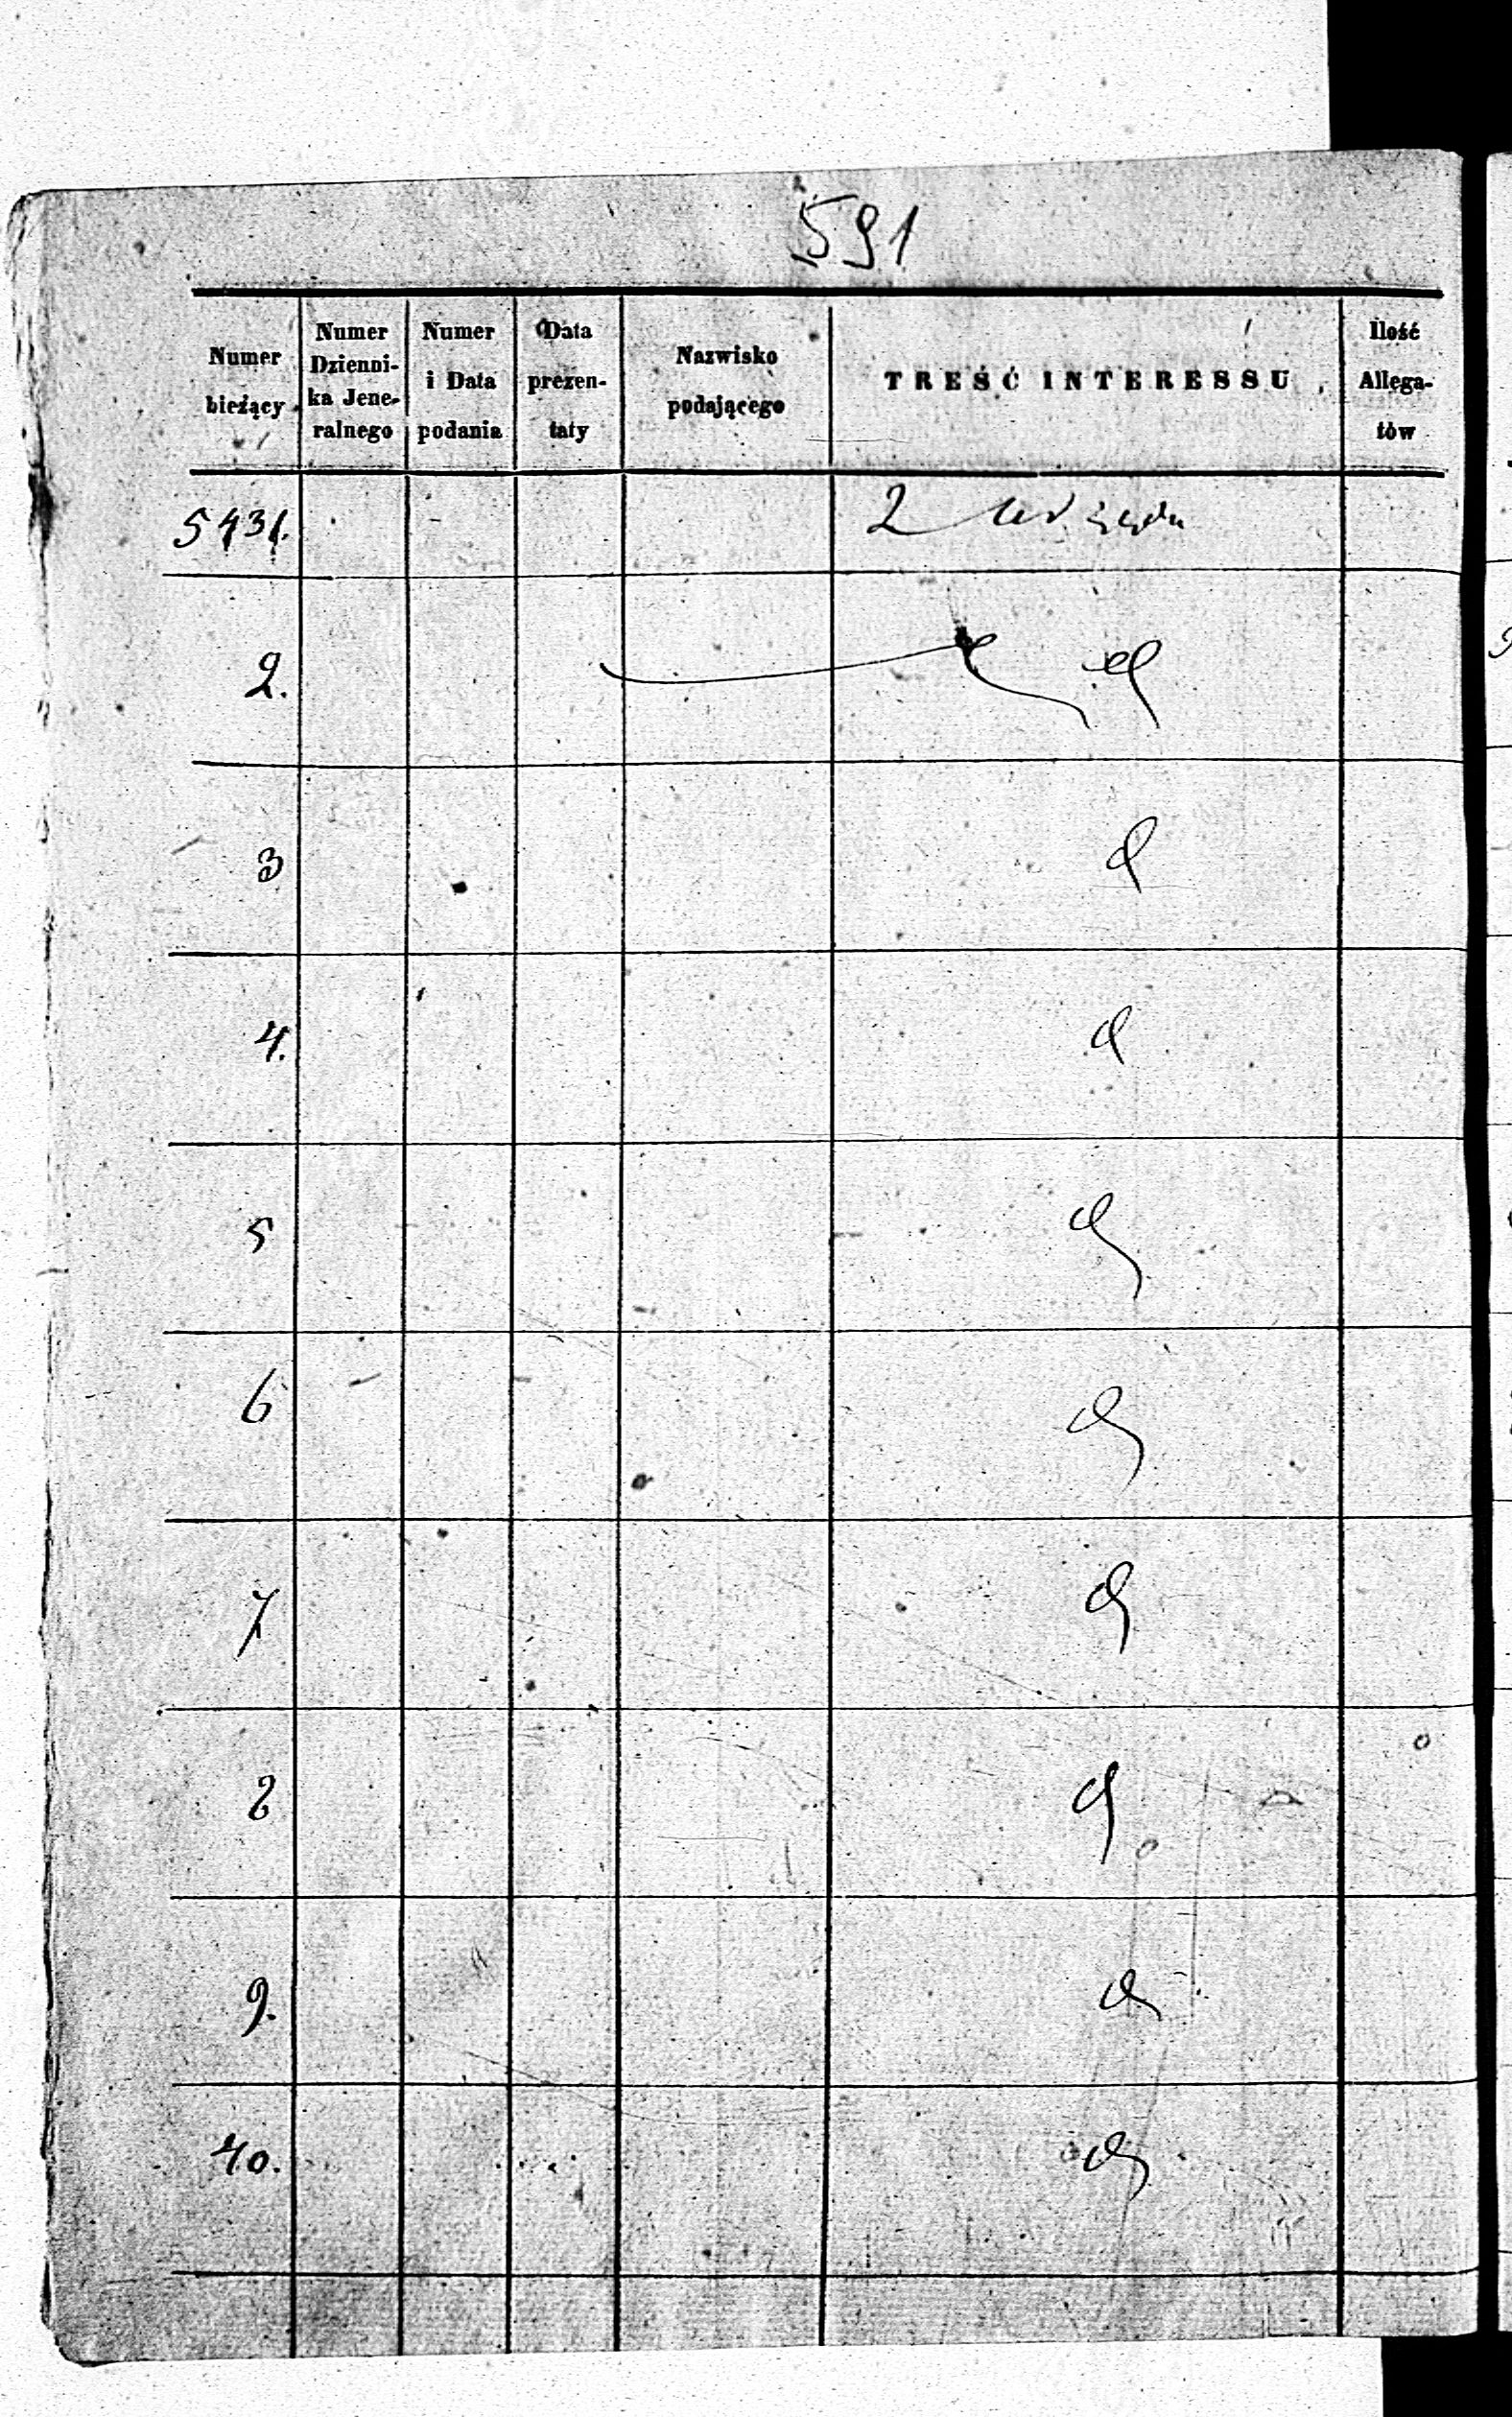 591
Numer bieżący
Numer Dzienni-ka Jene-ralnego
Numer i Data podania
Data prezen-taty
Nazwisko podającego
TREŚĆ INTERESSU
Ilość Allega-tów
5431.
2.
3
4.
5
6
7
8
9.
40.